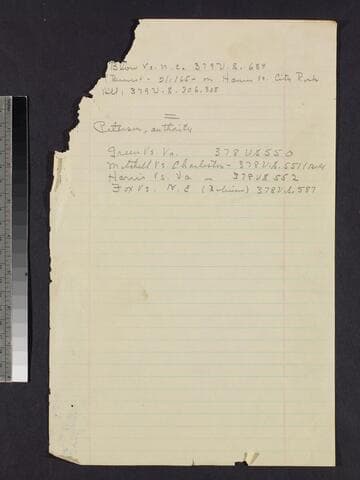 Blow Vs. N.C. 379 U.S. 684
21,166 - on Hamm Vs. City Rock
Hill, 379 U.S. 306, 308
=
Peterson, authority
Green Vs. Va. 378 U.S. 550
Mitchell Vs Charleston - 378 U.S. 551
Harris Vs. Va - 378 U.S. 552
Fox Vs. N.C. 378 U.S. 587